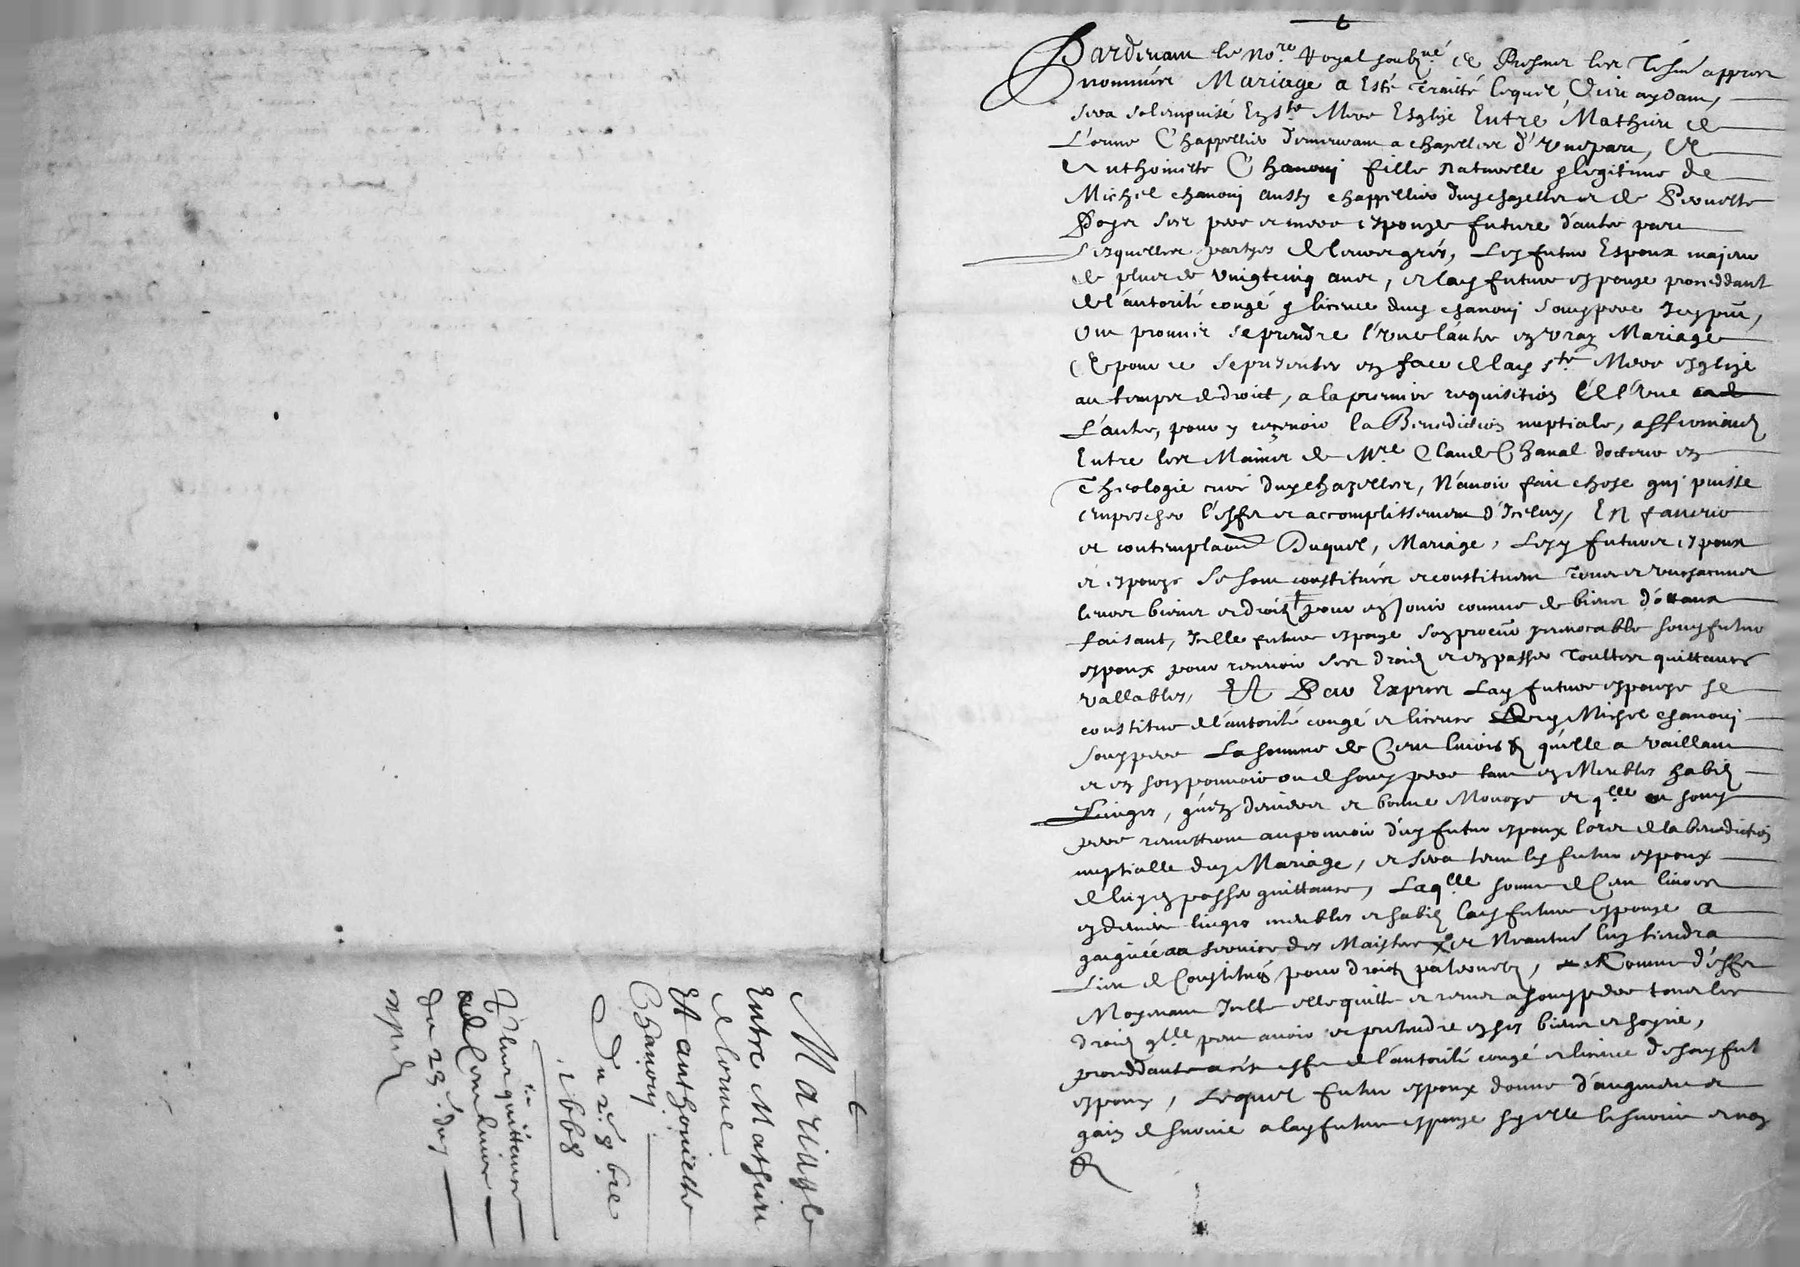 Pardevant le No.re Royal soubz.né et Presens les Tesm. appres
nommés Mariage a Esté Traitté lequel Dieu aydant,
sera solempnisé En s.te Mere Esglise Entre Mathieu de
L'orme Chappellier demeurant a chazelles d'Une part, Et
Anthoinette Chanouy fille naturelle & legitime de
Michel chanouy aussy chappellier dud chazelles et de Pernette
Poyet ses pere et mere espouze future d'autre part
Lesquelles partyes de leurs grés, Led futur Espoux majeur
de plus de vingtcinq ans, et lad future espouze proceddant
de l'autorité congé & licence dud chanouy son pere Icy pnt,
Ont promis se prendre l'Un l'autre en vray Mariage
Et pour ce se presenter en face de lad s.te Mere esglize
au temps de droict, a la premiere requisition de l'Une
L'autre, pour y recepvoir la Benediction nuptiale, affirmants
Entre les Mains de M.re Claude Chanal docteur en
Theologie curé dud chazelles, N'avoir fait chose qui puisse
empescher l'effet et accomplissement d'Iceluy, En faveur
et contemplaon Duquel, Mariage, Lesd futurs espoux
et espouze se sont constitués et constituent Tous et uns chacuns
leurs biens et droits pour en Jouir comme de biens dotaux
faisant, Icelle future espouze son procur irrevocable sond futur
espoux pour recevoir ses droits et en passer Touttes quittances
vallables, Et Par Expres Lad future espouze se
constitue de l'autorité congé et licence dud Michel chanouy
son pere La somme de Cent livres qu'elle a vaillant
et en son pouvoir ou de sond pere tant en Meubles habits
Linges, qu'en deniers et bonne Monoye et q.lle et sond
pere remettront au pouvoir dud futur espoux lors de la benediction
nuptialle dud Mariage, et sera tenu led futur espoux
de luy en passer quittance, Laq.lle somme de Cent livres
en deniers linges meubles et habits lad future espouze a
gaignée au service des Maistres et Neantm. luy tiendra
Lieu de Constitués pour droits paternels, Comme d'effet
Moyenant Icelle elle quitte et remet a sond pere tous les
droits q.lle peut avoir et pretendre en ses biens et hoyrie,
proceddante a cet effet de l'autorité congé et licence de sond fut
espoux, Lequel futur espoux donne d'augment et
gain de survie a lad future espouze sy elle le survit et non
Mariage
Entre Mathieu
de lorme
Et anthoinette
Chanouy
Du 2.e 8bre
1668
Plus quittance
de Cent livres
du 23.e dud
apres